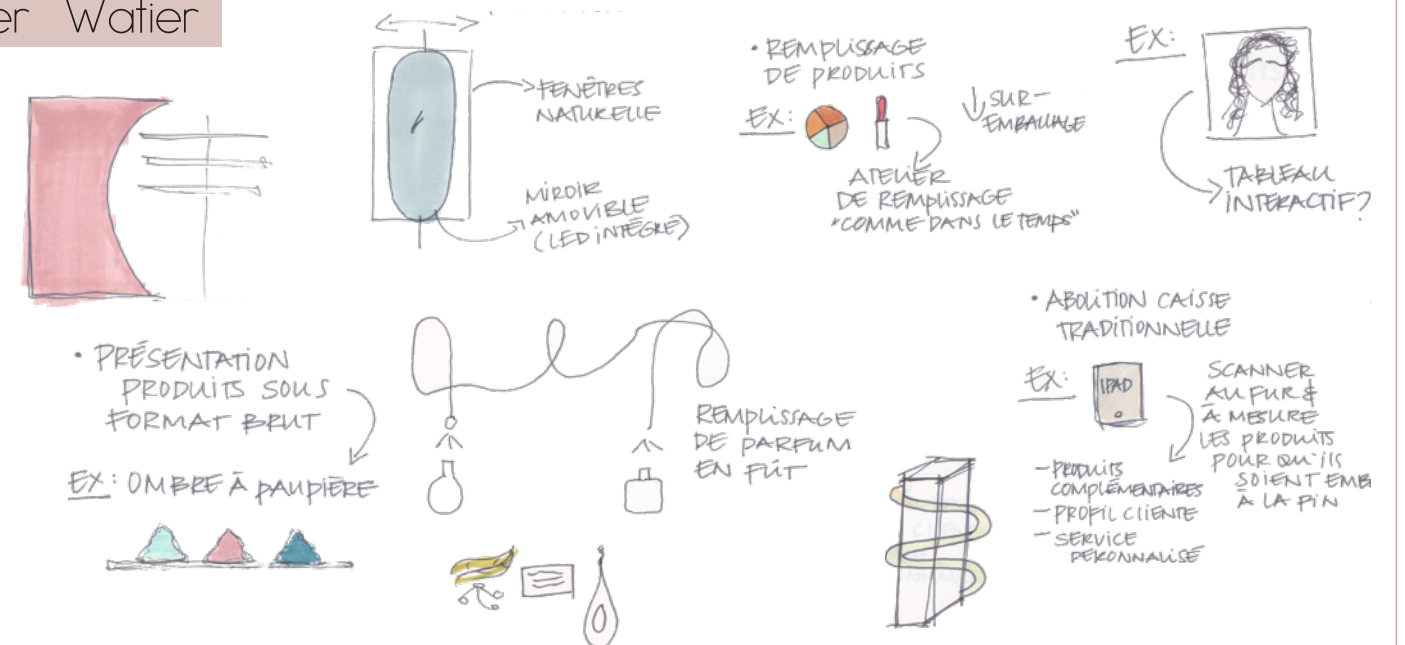 er Watier
FENÊTRES
NATURELLE
MIROIR
AMOVIBLE
(LED INTÉGRÉ)
• REMPLISSAGE
DE PRODUITS
EX:
SUR-
EMBALLAGE
ATELIER
DE REMPLISSAGE
"COMME DANS LE TEMPS"
EX:
TABLEAU
INTERACTIF?
• PRÉSENTATION
PRODUITS SOUS
FORMAT BRUT
EX: OMBRE À PAUPIÈRE
REMPLISSAGE
DE PARFUM
EN FÛT
• ABOLITION CAISSE
TRADITIONNELLE
EX:
IPAD
SCANNER
AU FUR &
À MESURE
LES PRODUITS
POUR QU'ILS
SOIENT EMB
À LA FIN
- PRODUITS
COMPLÉMENTAIRES
- PROFIL CLIENTE
- SERVICE
PERONNALISÉ